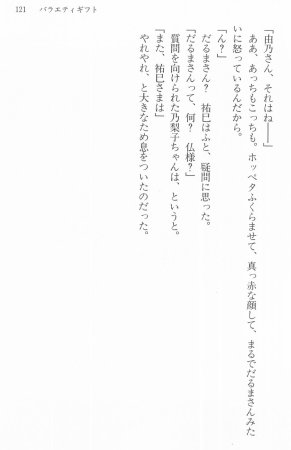 121 バラエティギフト
「由乃さん、それはね――」
ああ、あっちもこっちも。ホッペタふくらませて、真っ赤な顔して、まるでだるまさんみた
いに怒っているんだから。
「ん？」
だるまさん？　祐巳はふと、疑問に思った。
「だるまさんって、何？　仏様？」
質問を向けられた乃梨子ちゃんは、というと。
「また、祐巳さまは」
やれやれ、と大きなため息をついたのだった。